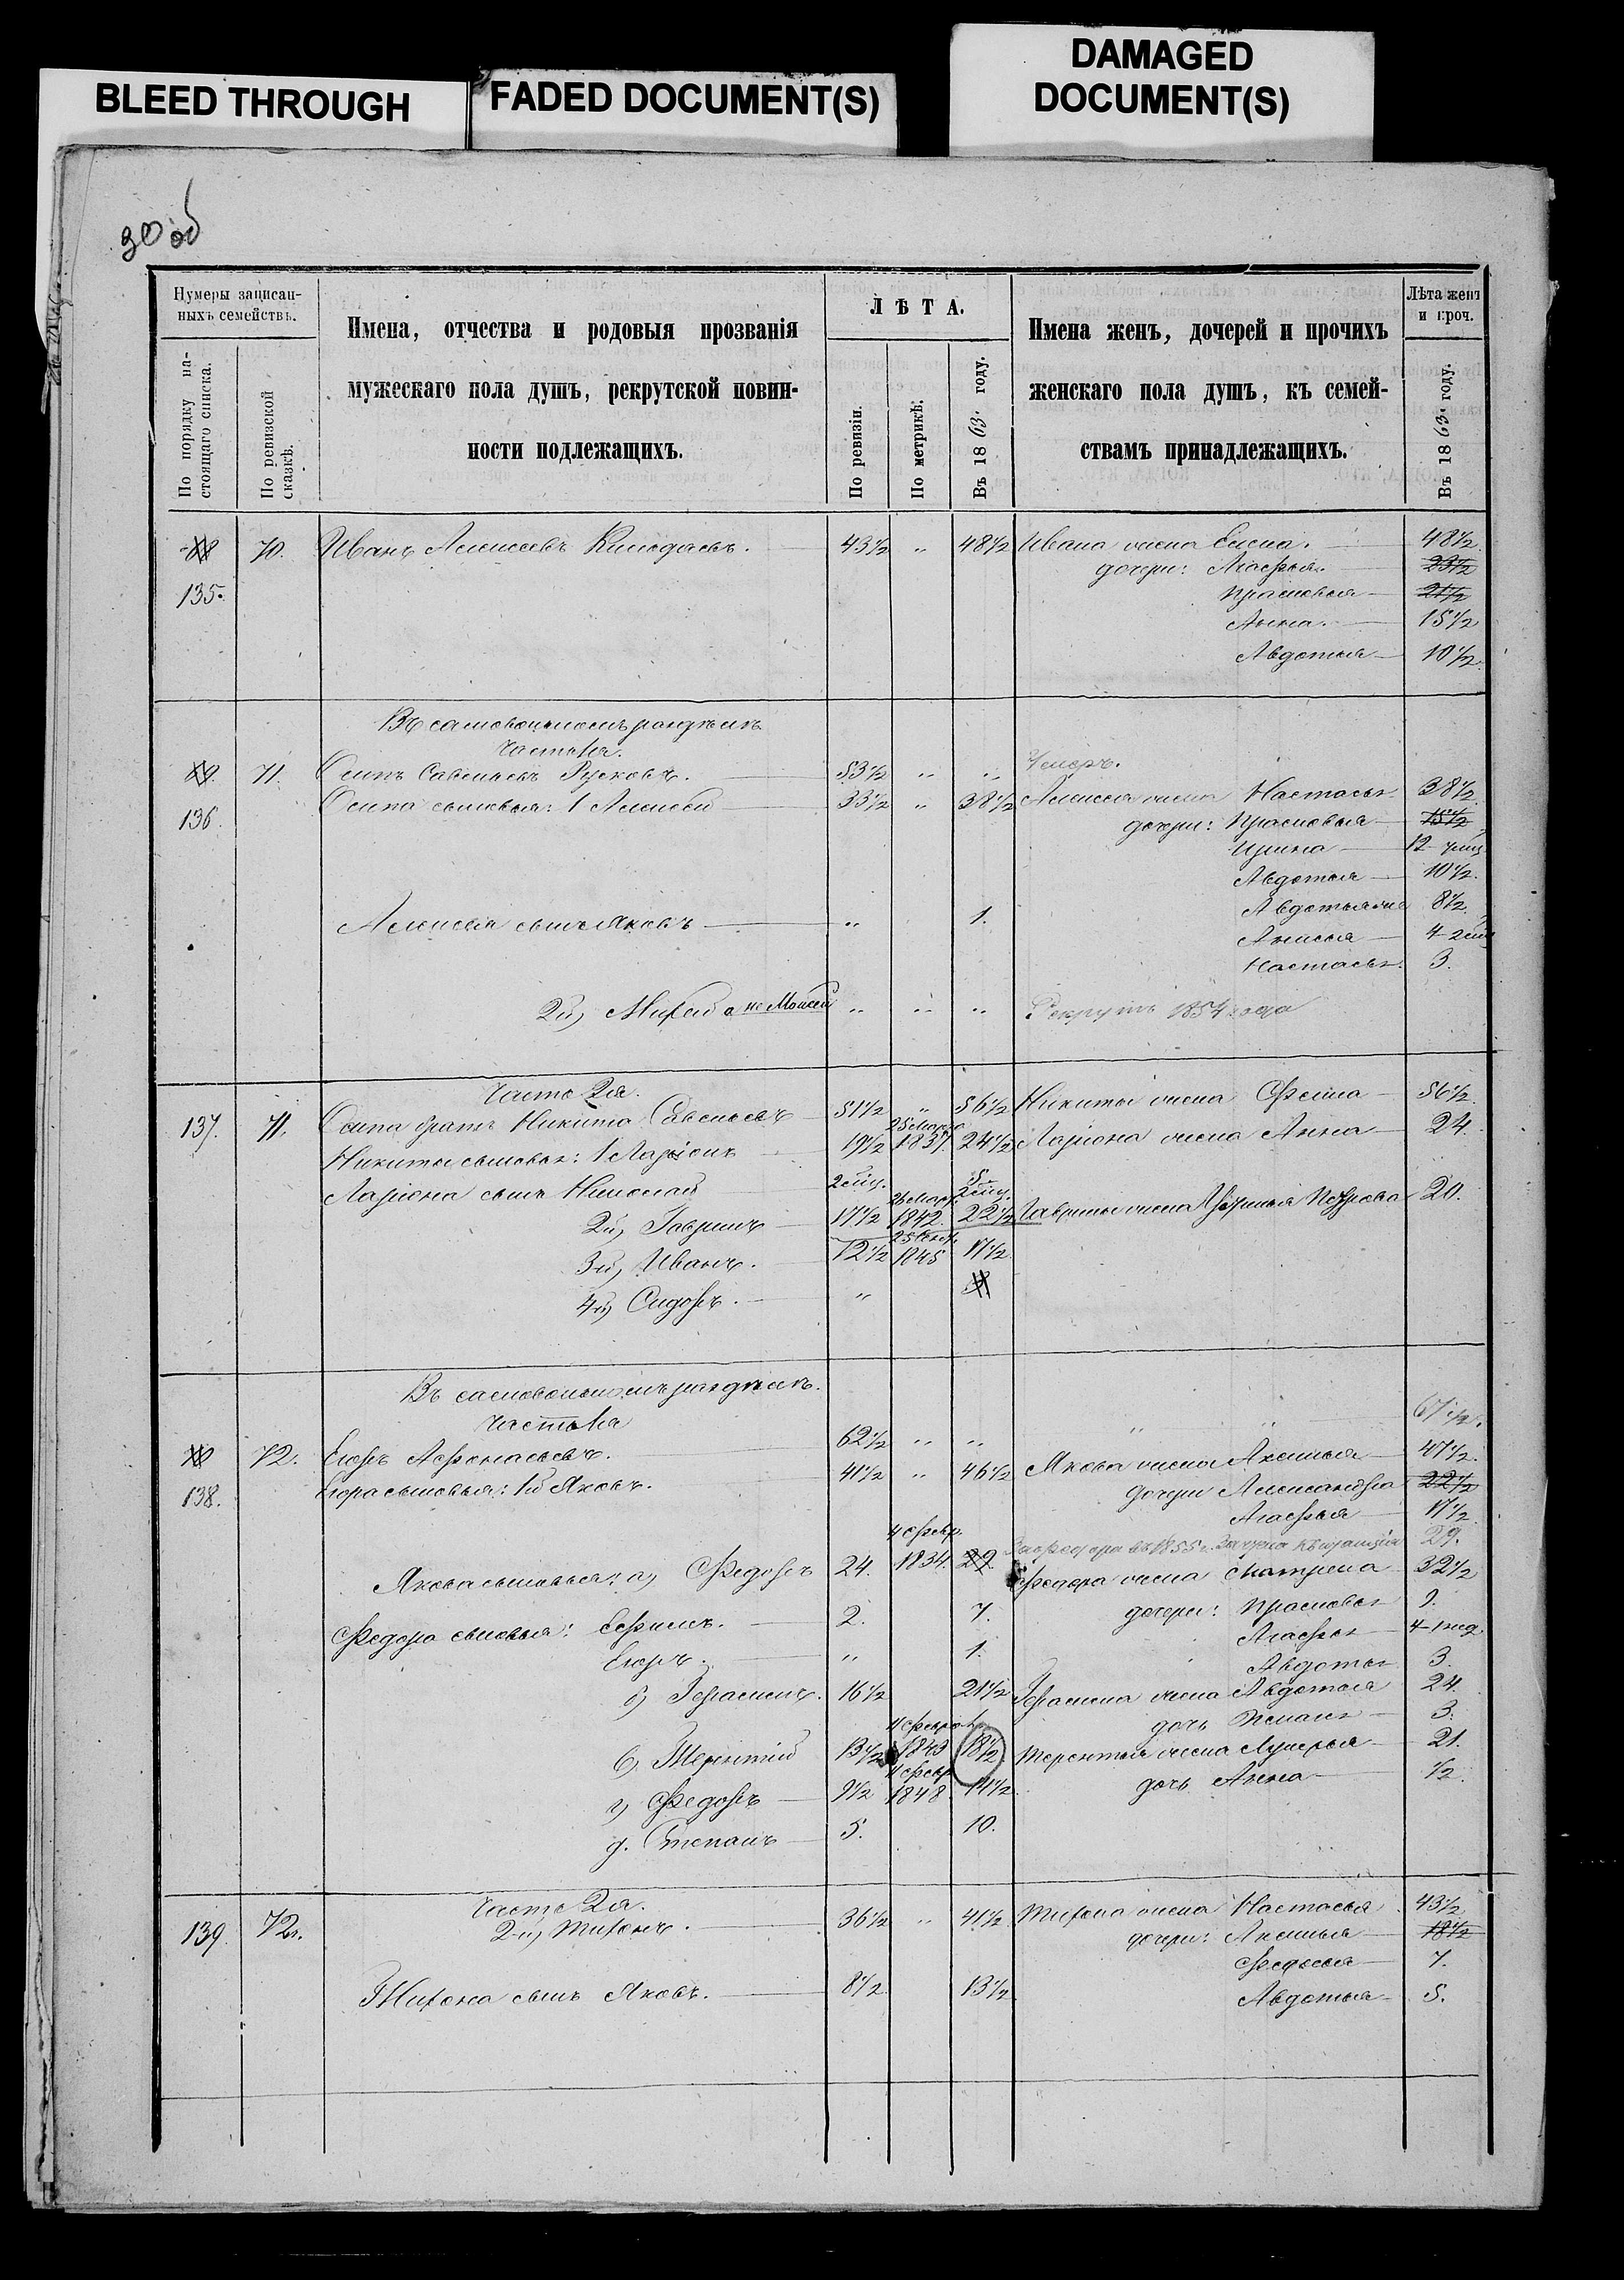 BLEED THROUGH
FADED DOCUMENT(S)
DAMAGED
DOCUMENT(S)
30 об
Нумеры записан-
ныхъ семействъ.
По порядку на-
стоящаго списка.
По ревизской
сказкѣ.
Имена, отчества и родовыя прозванія
мужескаго пола душъ, рекрутской повин-
ности подлежащихъ.
ЛѢТА.
По ревизіи.
По метрикѣ.
Въ 1863 году.
Имена женъ, дочерей и прочихъ
женскаго пола душъ, къ семей-
ствамъ принадлежащихъ.
Лѣта женъ
и проч.
Въ 1863 году.
70. Иванъ Алексеевъ 43½ " 48½ Ивана жена Елена. 48½
дочери: Агафья. 23½
135. Прасковья 21½
Анна. 15½
Авдотья 10½
Въ самовольномъ раздѣлѣ
Часть 1я.
71. Осипъ Савельевъ Русковъ. 53½ " " Умеръ.
136. Осипа сыновья: 1 Алексей 33½ " 38½ Алексея жена Настасья 38½
дочери: Прасковья 15½
Ирина 12
Авдотья 10½
Авдотья 8½
Алексея сынъ Яковъ " 1.
Анисья 4
Настасья. 3.
2й, Михей а не Моисей " " " Рекрутъ 1854 года
Часть 2я.
137. 71. Осипа братъ Никита Савельевъ 51½ " 56½ Никиты жена Фекла 56½
Никиты сыновья: 1 Ларіонъ 19½ 25 марта 1837. 24½ Ларіона жена Анна 24.
Ларіона сынъ Николай
2й, Гаврилъ 17½ 26 март. 1842. 22½ Гаврилы жена Петрова 20.
3й, Иванъ. 12½ 1845 17½
4й, Сидоръ. "
Въ самовольномъ раздѣлѣ.
Часть 1я
" " 67½.
72. Егоръ Афонасьевъ. 62½ " "
138. Егора сыновья: 1й Яковъ. 41½ " 46½ Якова жена Аксинья 47½.
дочери Александра 22½
Агафья 17½
29.
Якова сыновья: а, Федоръ 24. 4 февр. 1834. 29 Федора жена Матрена 32½
Федора сыновья: Ефимъ. 2. 7. дочери: Прасковья 9.
Агафья 4
Егоръ. " 1.
Авдотья 3.
б, Герасимъ. 16½ 21½ Герасима жена Авдотья 24.
дочь 3.
в, Терентій 13½ 1843 18½ Терентья жена Лукерья 21.
г, Федоръ 9½ 4 февр 1848 14½ дочь Анна ½.
д. Степанъ 5. 10.
Часть 2я.
139. 72. 2й, Тихонъ. 36½ " 41½ Тихона жена Настасья 43½
дочери: Аксинья 18½
Федосья 7.
Тихона сынъ Яковъ. 8½ 13½ Авдотья 5.